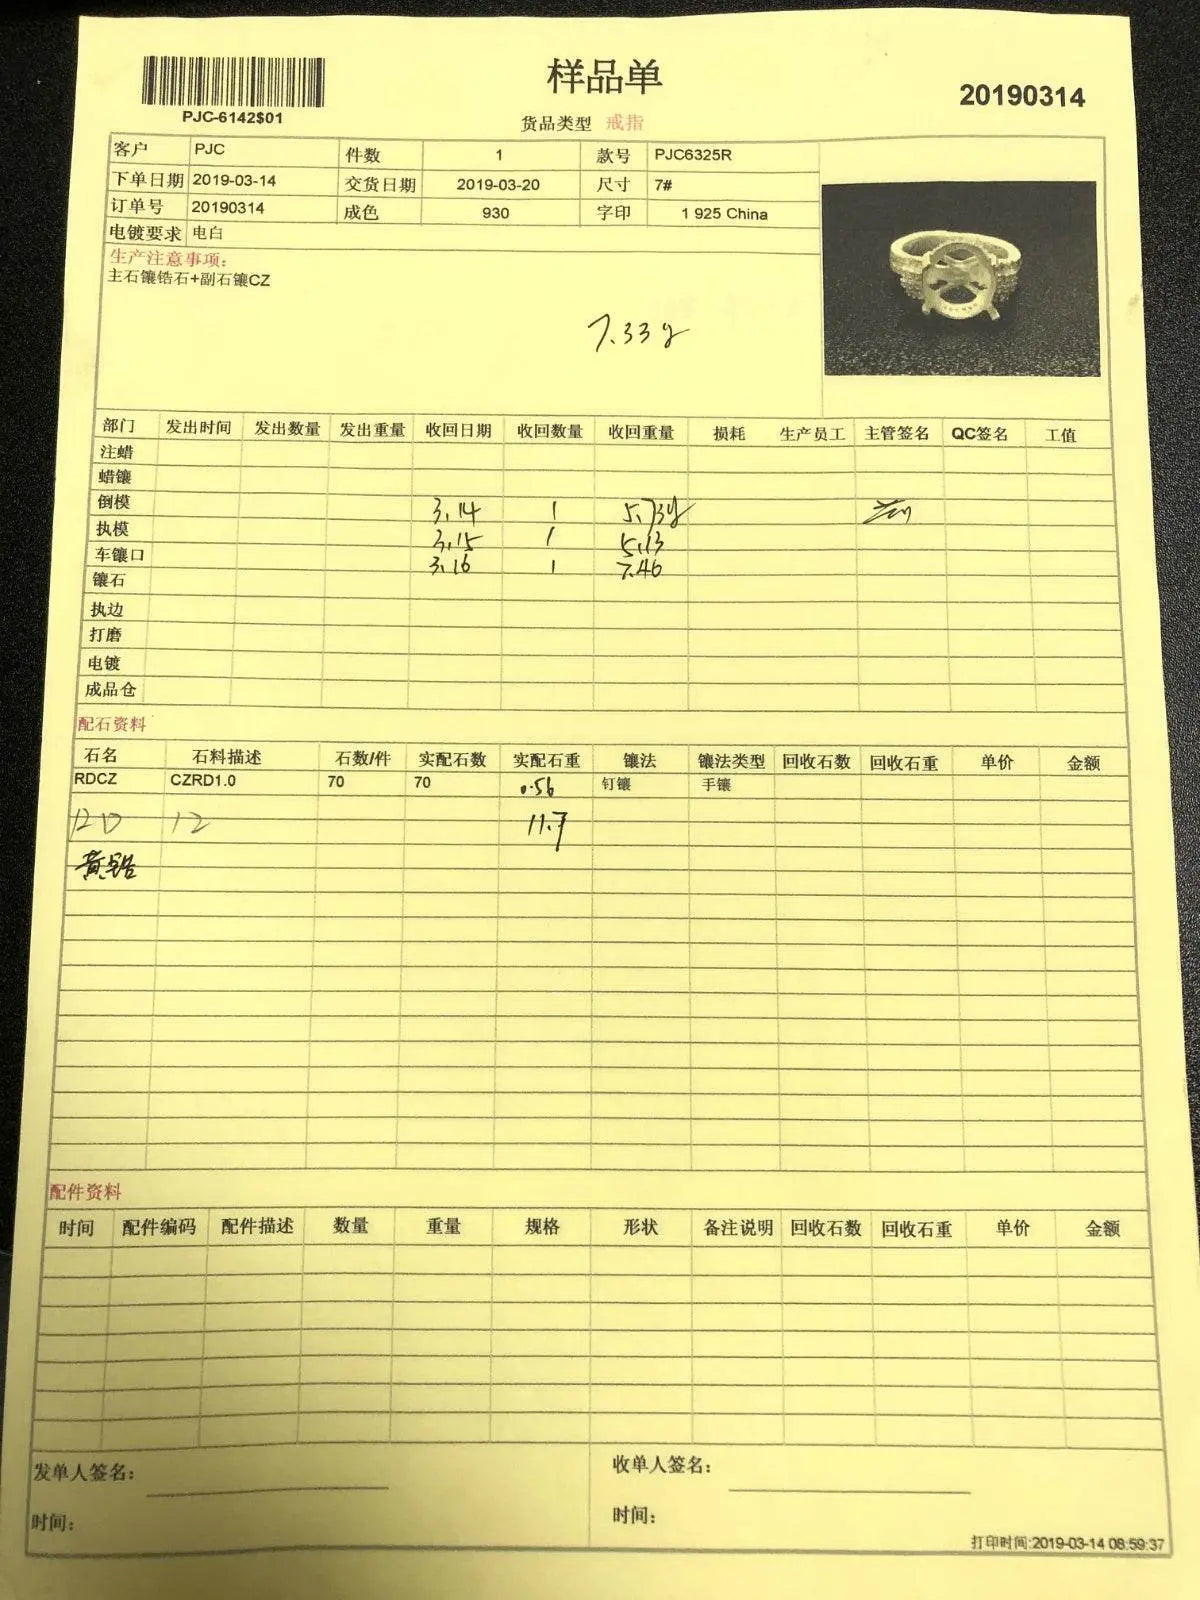 样品单
20190314
PJC-6142$01
货品类型 戒指
客户 PJC 件数 1 款号 PJC6325R
下单日期 2019-03-14 交货日期 2019-03-20 尺寸 7#
订单号 20190314 成色 930 字印 1 925 China
电镀要求 电白
生产注意事项:
主石镶锆石+副石镶CZ
7.33g
部门 发出时间 发出数量 发出重量 收回日期 收回数量 收回重量 损耗 生产员工 主管签名 QC签名 工值
注蜡
蜡镶
倒模 3.14 1 5.73g
执模 3.15 1 5.13
车镶口 3.16 1 7.46
镶石
执边
打磨
电镀
成品仓
配石资料
石名 石料描述 石数/件 实配石数 实配石重 镶法 镶法类型 回收石数 回收石重 单价 金额
RDCZ CZRD1.0 70 70 0.56 钉镶 手镶
RD 12 11.7
黄锆
配件资料
时间 配件编码 配件描述 数量 重量 规格 形状 备注说明 回收石数 回收石重 单价 金额
发单人签名: 收单人签名:
时间: 时间:
打印时间:2019-03-14 08:59:37